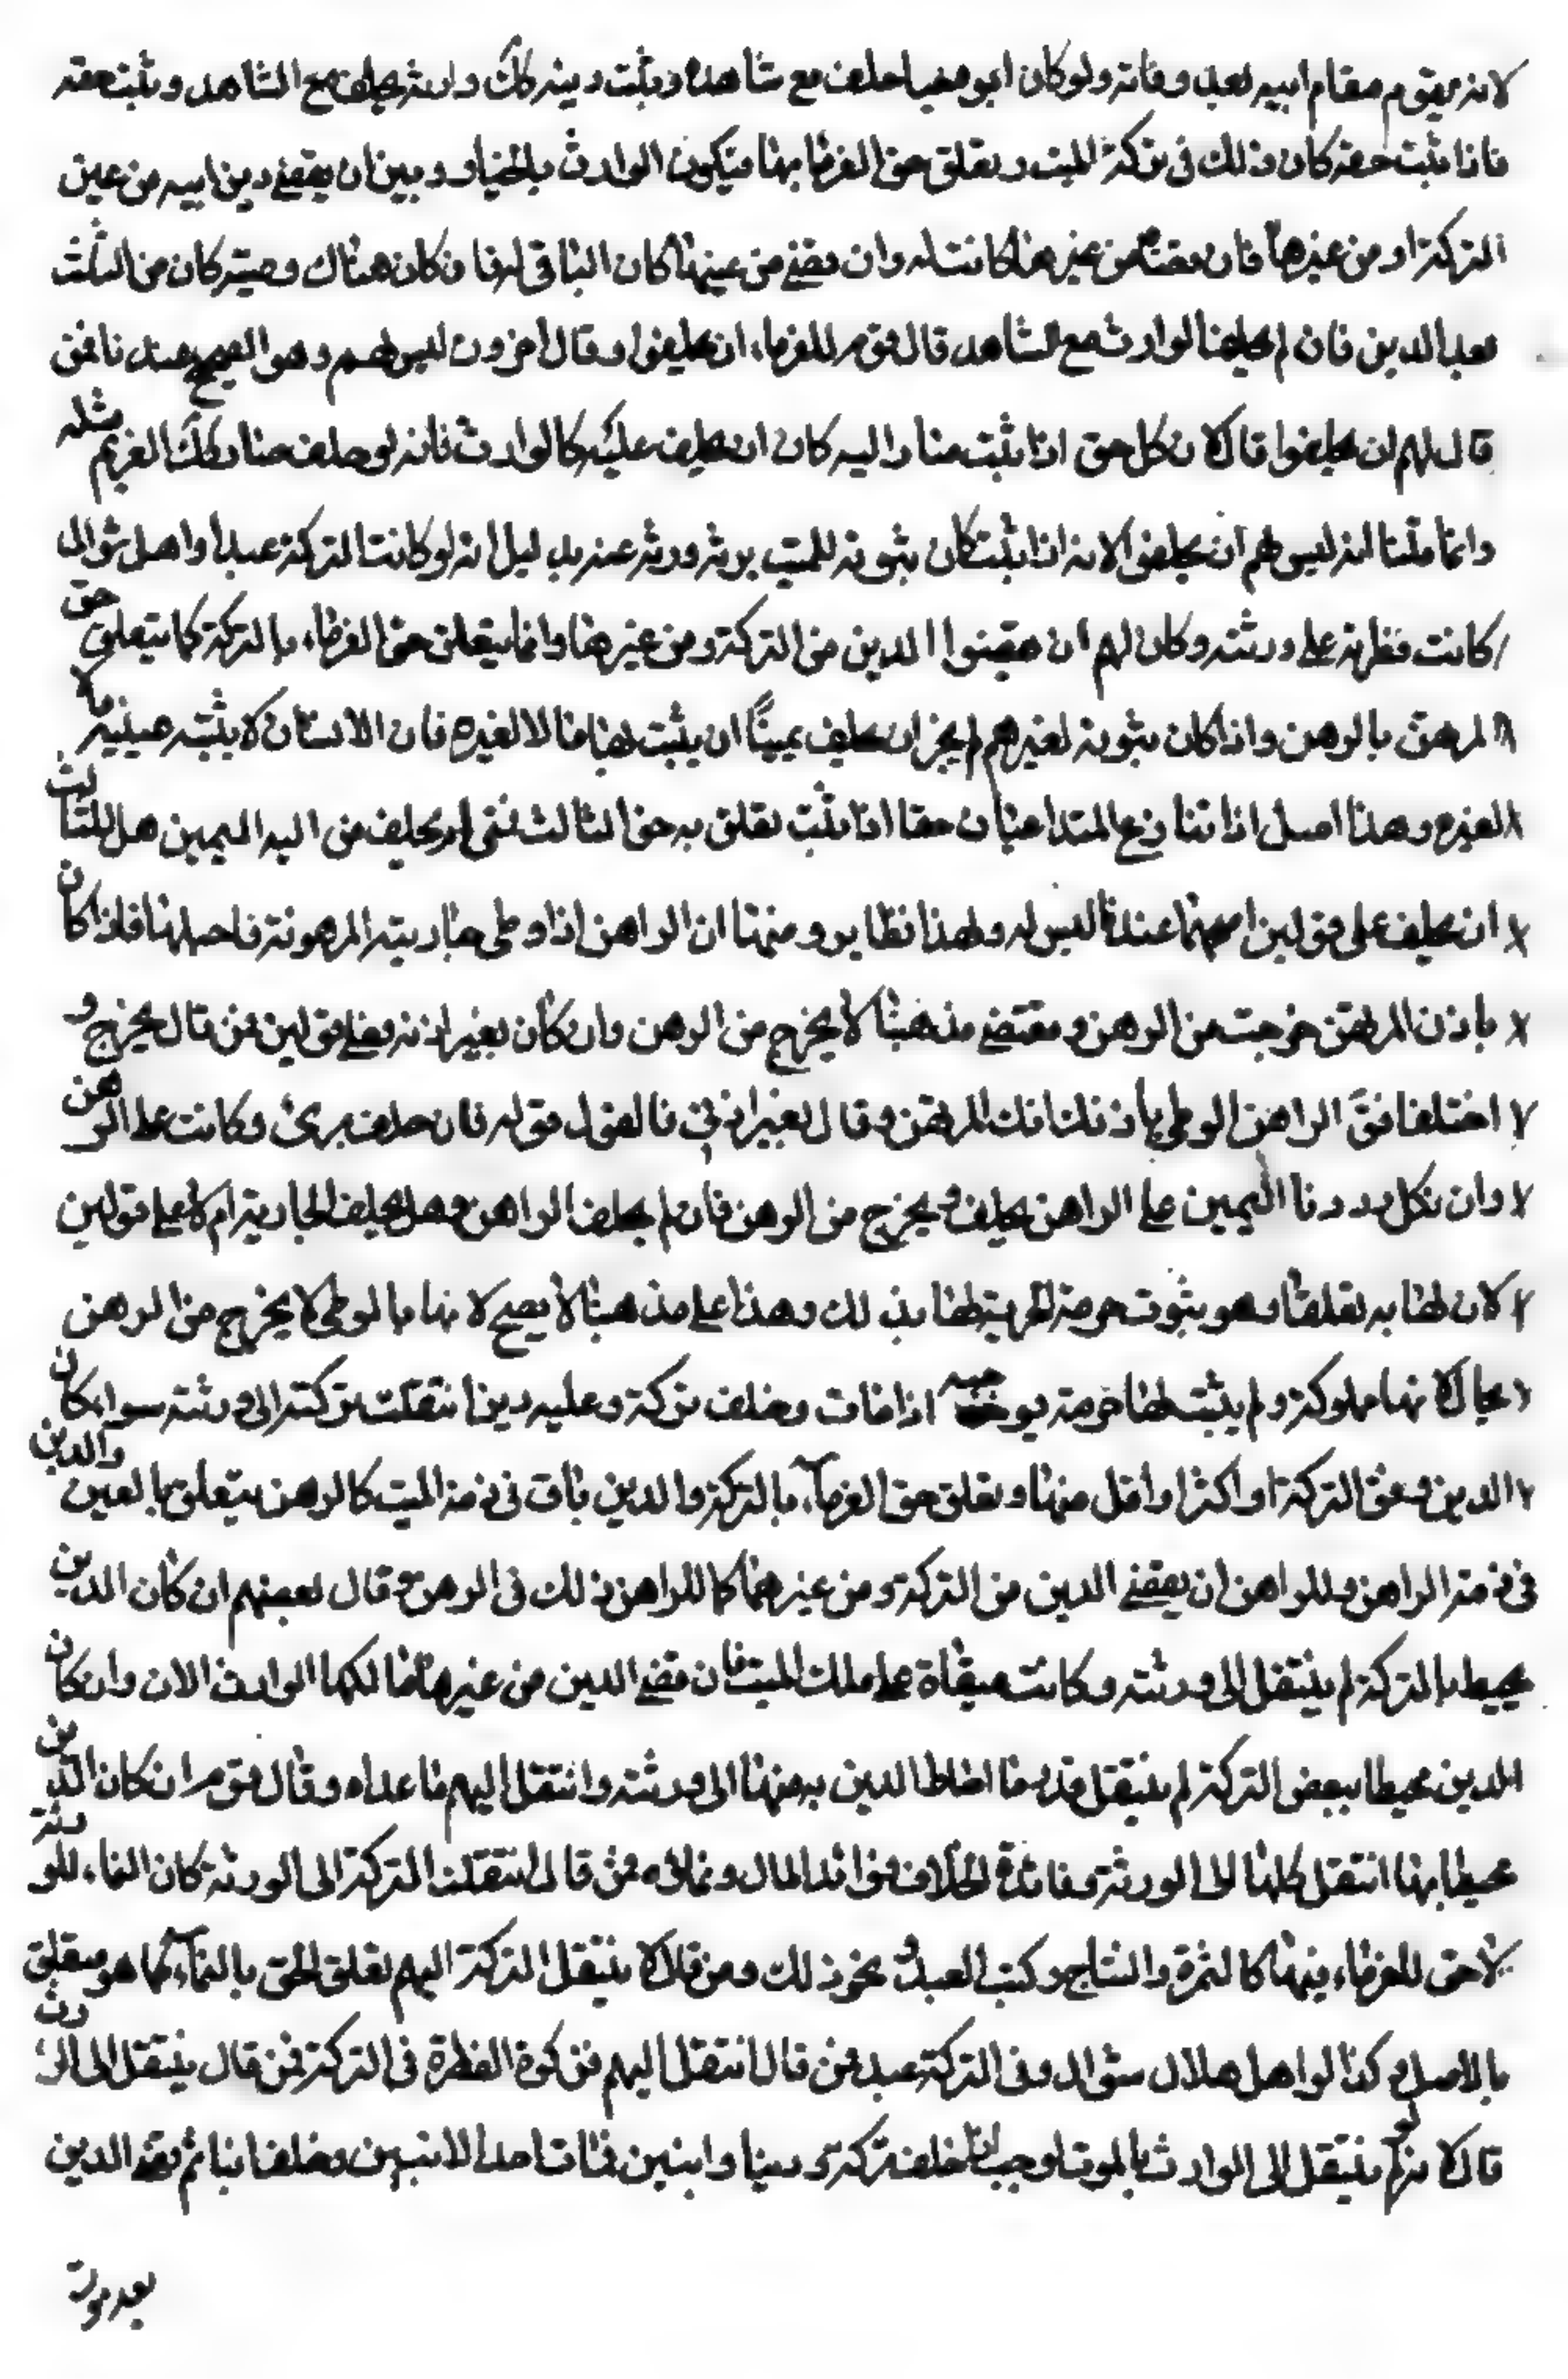 لانه يقوم مقام ابيه بعد وفاته ولو كان ابوه حيا حلف مع شاهده وثبت دينه كك وارثه يحلف مع الشاهد ويثبت حقه
فاذا ثبت حقه كان ذلك فى تركة الميت وتعلق حق الغرما بها فيكون الوارث بالخيار وبين ان يقضى دين ابيه من عين
التركة او من غيرها فان قضا من غيرها كانت له وان قضى من عينها كان الباقى له فان كان هناك وصية كان من الثلث
بعد الدين فان لم يحلف الوارث مع الشاهد قال قوم للغرماء ان يحلفوا وقال اخرون ليس لهم وهو الصحيح عندنا فمن
قال لهم ان يحلفوا قال لان كل حق اذا ثبت صار اليه كان ان يحلف عليه كالوارث فانه لو حلف صار كك الغريم مثله
وانما قلنا انه ليس لهم ان يحلفوا لانه اذا ثبت كان ثبوته للميت يرثه ورثه عنه بدليل انه لو كانت التركة عبدا واهل شوال
كانت فطرته على ورثته وكان لهم ان يقضوا الدين من التركة ومن غيرها وانما يتعلق حق الغرماء بالتركة كما يتعلق حق
المرتهن بالرهن واذا كان ثبوته لغيرهم لم يجز ان يحلف يمينا ان يثبت بها مالا لغيره فان الانسان لا يثبت بيمينه مالا
لغيره وهذا اصل اذا تنازع المتداعيان حقا اذا ثبت تعلق به حق الثالث فمتى لم يحلف من اليه اليمين هل للثالث
ان يحلف على قولين اصحهما عندنا ليس له ولهذا نظاير ومنها ان الراهن اذا وطى جاريته المرهونة فاحبلها فاذا كان
باذن المرتهن خرجت من الرهن ومقتضى مذهبنا لا يخرج من الرهن وان كان بغير اذنه فعلى قولين فمن قال يخرج و
اختلفا فق الراهن الوطى باذنك المرتهن وقال بغير اذنى فالقول قوله فان حلف برئ وكانت على الرهن
وان نكل رددنا اليمين على الراهن يحلف ويخرج من الرهن فان لم يحلف الراهن وهل يحلف الجارية ام لا على قولين
لان لها به تعلقا وهو ثبوت حرمة الحرية لها بذلك وهذا على مذهبنا لا يصح لانها بالوطى لا يخرج من الرهن
بحال لانها مملوكة ولم يثبت لها حرمة اذا مات وخلف تركة وعليه دين انتقلت تركته الى ورثته سواء كان
الدين وفق التركة او اكثر او اقل منها وتعلق حق الغرماء بالتركة والدين باق فى ذمة الميت كالرهن يتعلق بالعين والدين
فى ذمة الراهن وللراهن ان يقضى الدين من التركة ومن غيرها كما للراهن ذلك فى الرهن وقال بعضهم ان كان الدين
يحيط بالتركة لم ينتقل الى ورثته وكانت مبقاة على ملك الميت فان قضى الدين من غيرها مالكها الوارث الان وان كان
الدين محيطا ببعض التركة لم ينتقل قدر ما احاط الدين به منها الى ورثته وانتقل اليهم ما عداه وقال قوم ان كان الدين
محيطا بها انتقل كلها الى الورثة وفائدة الخلاف فوائد المال ونمائه فمن قال انتقلت التركة الى الورثة كان النماء للورثة
لا حق للغرماء فيها كالثمرة والنتاج وكسب العبد ونحو ذلك ومن قال لا ينتقل التركة اليهم تعلق الحق بالنماء كما هو متعلق
بالاصل وكذا لو اهل هلال شوال وفى التركة عبد فمن قال انتقل اليهم فزكوة الفطرة فى التركة فمن قال ينتقل الى الوارث
قال لانه لو لم ينتقل الى الوارث بالموت لوجب اذا خلف تركة ودينا وابنين فمات احد الابنين وخلف ابنا ثم قضى الدين
بعد موت